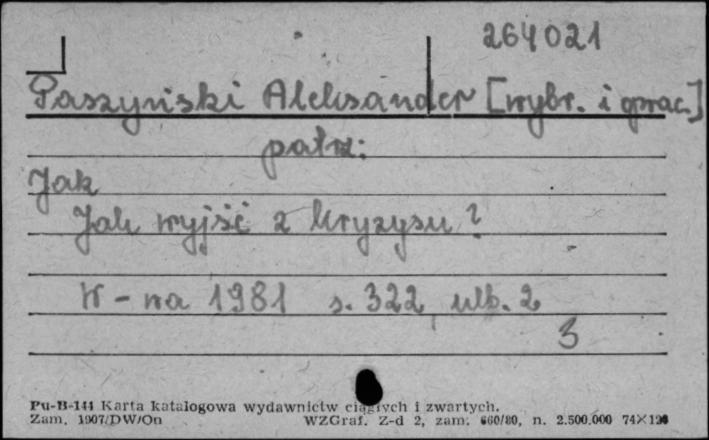 264021
Paszyński Aleksander [wybr. i oprac.]
patrz:
Jak
Jak wyjść z kryzysu?
W-wa 1981 s. 322, ulb. 2
3
Pu-B-144 Karta katalogowa wydawnictw ciągłych i zwartych.
Zam. 1907/DW/On WZGraf. Z-d 2, zam. 660/80, n. 2.500.000 74×124